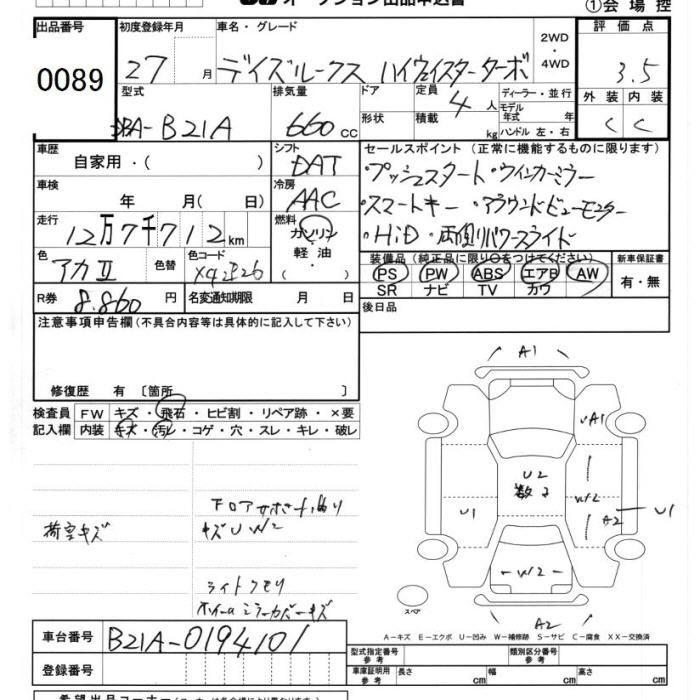 オークション出品申込書
①会場控
出品番号
0089
初度登録年月
27 月
車名・グレード
デイズルークス ハイウェイスターターボ
2WD・4WD
評価点
3.5
外装 内装
C C
型式
DBA-B21A
排気量
660 cc
ドア
形状
定員 4 人
積載 kg
ディーラー・並行
モデル年式 年式
ハンドル 左・右
車歴
自家用・( )
シフト
DAT
セールスポイント (正常に機能するものに限ります)
・プッシュスタート・ウインカーミラー
・スマートキー・アラウンドビューモニター
・HiD・両側パワースライド
車検
年 月(日)
冷房
AAC
走行
12万7千712km
燃料
ガソリン
軽油・
( )
色
アカⅡ
色替
色コード
装備品(純正品に限り○をつけてください)
PS PW ABS エアB AW
SR ナビ TV カワ
新車保証書
有・無
R券 8,860 円
名変通知期限 月 日
後日品
注意事項申告欄(不具合内容等は具体的に記入して下さい)
修復歴 有〔箇所 〕
検査員記入欄
FW キズ・飛石・ヒビ割・リペア跡・×要
内装 キズ・汚レ・コゲ・穴・スレ・キレ・破レ
荷室キズ
キズUW2
ライトクモリ
A1
A1
U2
W2
U1
A2
U1
W2
A2
スペア
A-キズ E-エクボ U-凹み W-補修跡 S-サビ C-腐食 XX-交換済
車台番号
B21A-0194101
登録番号
型式指定番号 参考
類別区分番号 参考
車庫証明用 参考
長さ cm 幅 cm 高さ cm